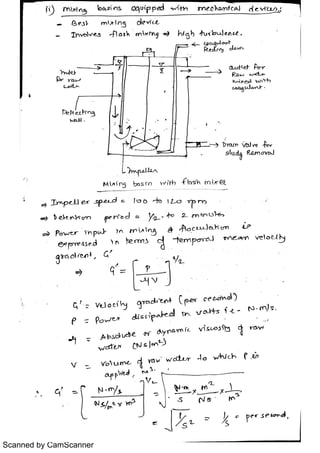 ii) mixing basins equipped with mechanical devices:
- Best mixing device
- Involves flash mixing ⇒ high turbulence.
coagulant
Feeding devn.
Inlet
for raw
water
outlet for
Raw water
mixed with
coagulant.
Deflecting
wall.
Drain valve for
sludg Removal
Impeller
Mixing basin with flash mixer
⇒ Impeller speed = 100 to 120 rpm
⇒ Detention period = 1/2 - to 2 minutes
⇒ Power input in mixing & flocculation is
expressed in terms of temporal mean velocity
gradient, G'
⇒ G' = [P / μV]^1/2
G' = velocity gradient (per second)
P = Power dissipated in watts i.e - N-m/s.
μ = Absolute or dynamic viscosity of raw
water (Ns/m²)
V = volume of raw water to which P is
applied, m3.
∴ G' = [N-m/s / Ns/m² x m³]^1/2 = [N-m / s x m² / Ns x 1 / m³]
= √1/s² = 1/s = per second.
Scanned by CamScanner